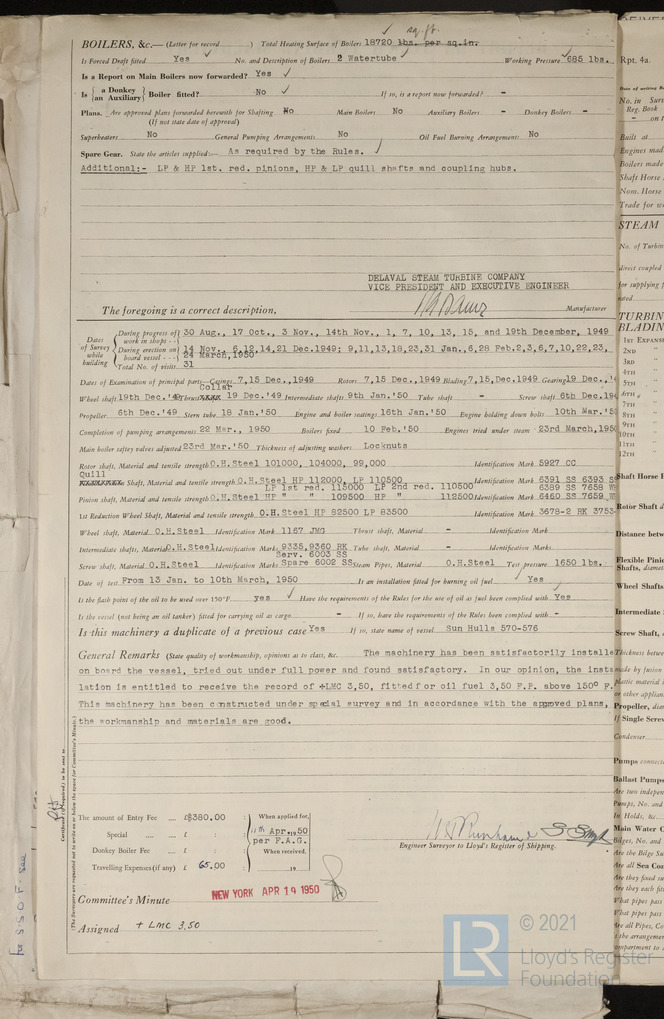 BOILERS, &c.— (Letter for record ) Total Heating Surface of Boilers 18720 lbs. per sq.in. sq.ft.
Is Forced Draft fitted Yes No. and Description of Boilers 2 Watertube Working Pressure 685 lbs.
Is a Report on Main Boilers now forwarded? Yes
Is { a Donkey / an Auxiliary } Boiler fitted? No If so, is a report now forwarded? -
Plans. Are approved plans forwarded herewith for Shafting No Main Boilers No Auxiliary Boilers - Donkey Boilers -
(If not state date of approval)
Superheaters No General Pumping Arrangements No Oil Fuel Burning Arrangements No
Spare Gear. State the articles supplied:— As required by the Rules.
Additional:- LP & HP 1st. red. pinions, HP & LP quill shafts and coupling hubs.
DELAVAL STEAM TURBINE COMPANY
VICE PRESIDENT AND EXECUTIVE ENGINEER
The foregoing is a correct description, Manufacturer
Dates of Survey while building
During progress of work in shops - - 30 Aug., 17 Oct., 3 Nov., 14th Nov., 1, 7, 10, 13, 15, and 19th December, 1949
During erection on board vessel - - - 14 Nov., 6,12,14,21 Dec.1949; 9,11,13,18,23,31 Jan.,6,28 Feb.2,3,6,7,10,22,23,
24 March,1950
Total No. of visits 31
Dates of Examination of principal parts—Casings 7,15 Dec.,1949 Rotors 7,15 Dec.,1949 Blading 7,15,Dec.1949 Gearing 19 Dec.,
Wheel shaft 19th Dec.'49 Thrust Collar 19 Dec.'49 Intermediate shafts 9th Jan.'50 Tube shaft - Screw shaft 6th Dec.19
Propeller 6th Dec.'49 Stern tube 18 Jan.'50 Engine and boiler seatings 16th Jan.'50 Engine holding down bolts 10th Mar.'5
Completion of pumping arrangements 22 Mar., 1950 Boilers fixed 10 Feb.'50 Engines tried under steam 23rd March,195
Main boiler safety valves adjusted 23rd Mar.'50 Thickness of adjusting washers Locknuts
Rotor shaft, Material and tensile strength O.H.Steel 101000, 104000, 99,000 Identification Mark 5927 CC
Quill Shaft, Material and tensile strength O.H.Steel HP 112000, LP 110500 Identification Mark 6391 SS 6393 S
LP 1st red. 115000 LP 2nd red. 110500 6389 SS 7658
Pinion shaft, Material and tensile strength O.H.Steel HP " " 109500 HP " 112500 Identification Mark 6460 SS 7659
1st Reduction Wheel Shaft, Material and tensile strength O.H.Steel HP 82500 LP 83500 Identification Mark 3678-2 RK 3753
Wheel shaft, Material O.H.Steel Identification Mark 1167 JMG Thrust shaft, Material - Identification Mark
Intermediate shafts, Material O.H.Steel Identification Marks 9335,9360 RK Tube shaft, Material - Identification Marks
Serv. 6003 SS
Screw shaft, Material O.H.Steel Identification Marks Spare 6002 SS Steam Pipes, Material O.H.Steel Test pressure 1650 lbs.
Date of test From 13 Jan. to 10th March, 1950 Is an installation fitted for burning oil fuel Yes
Is the flash point of the oil to be used over 150°F. yes Have the requirements of the Rules for the use of oil as fuel been complied with Yes
Is the vessel (not being an oil tanker) fitted for carrying oil as cargo - If so, have the requirements of the Rules been complied with -
Is this machinery a duplicate of a previous case Yes If so, state name of vessel Sun Hulls 570-576
General Remarks (State quality of workmanship, opinions as to class, &c. The machinery has been satisfactorily installe
on board the vessel, tried out under full power and found satisfactory. In our opinion, the insta
lation is entitled to receive the record of +LMC 3,50, fitted for oil fuel 3,50 F.P. above 150° F.
This machinery has been constructed under special survey and in accordance with the approved plans,
the workmanship and materials are good.
The amount of Entry Fee £$380.00 When applied for,
Special £ 11th Apr. 1950
per F.A.G.
Donkey Boiler Fee £ When received,
Travelling Expenses (if any) £ 65.00 19
Engineer Surveyor to Lloyd's Register of Shipping.
Committee's Minute NEW YORK APR 19 1950
Assigned + LMC 3.50
(The Surveyors are requested not to write on or below the space for Committee's Minute.)
Rpt. 4a.
No. in Surv
Reg. Book
Built at
Engines made
Boilers made
Shaft Horse
Nom. Horse
Trade for w
STEAM
No. of Turbin
direct coupled
for supplying
TURBIN
BLADING
1ST EXPANS
2ND "
3RD "
4TH "
5TH "
6TH "
7TH "
8TH "
9TH "
10TH "
11TH "
12TH "
Shaft Horse
Rotor Shaft d
Distance betw
Flexible Pinio
Shafts, diamet
Wheel Shafts
Intermediate
Screw Shaft,
Thickness betwe
Propeller, dia
If Single Screw
Condenser
Pumps connect
Ballast Pumps
Pumps, No. and
In Holds, &c.
Main Water C
Bilges, No. and
Are the Bilge Su
Are all Sea Con
Are they fixed su
Are they each fit
What pipes pass
What pipes pass
Are all Pipes, Co
© 2021
LR Lloyd's Register
Foundation